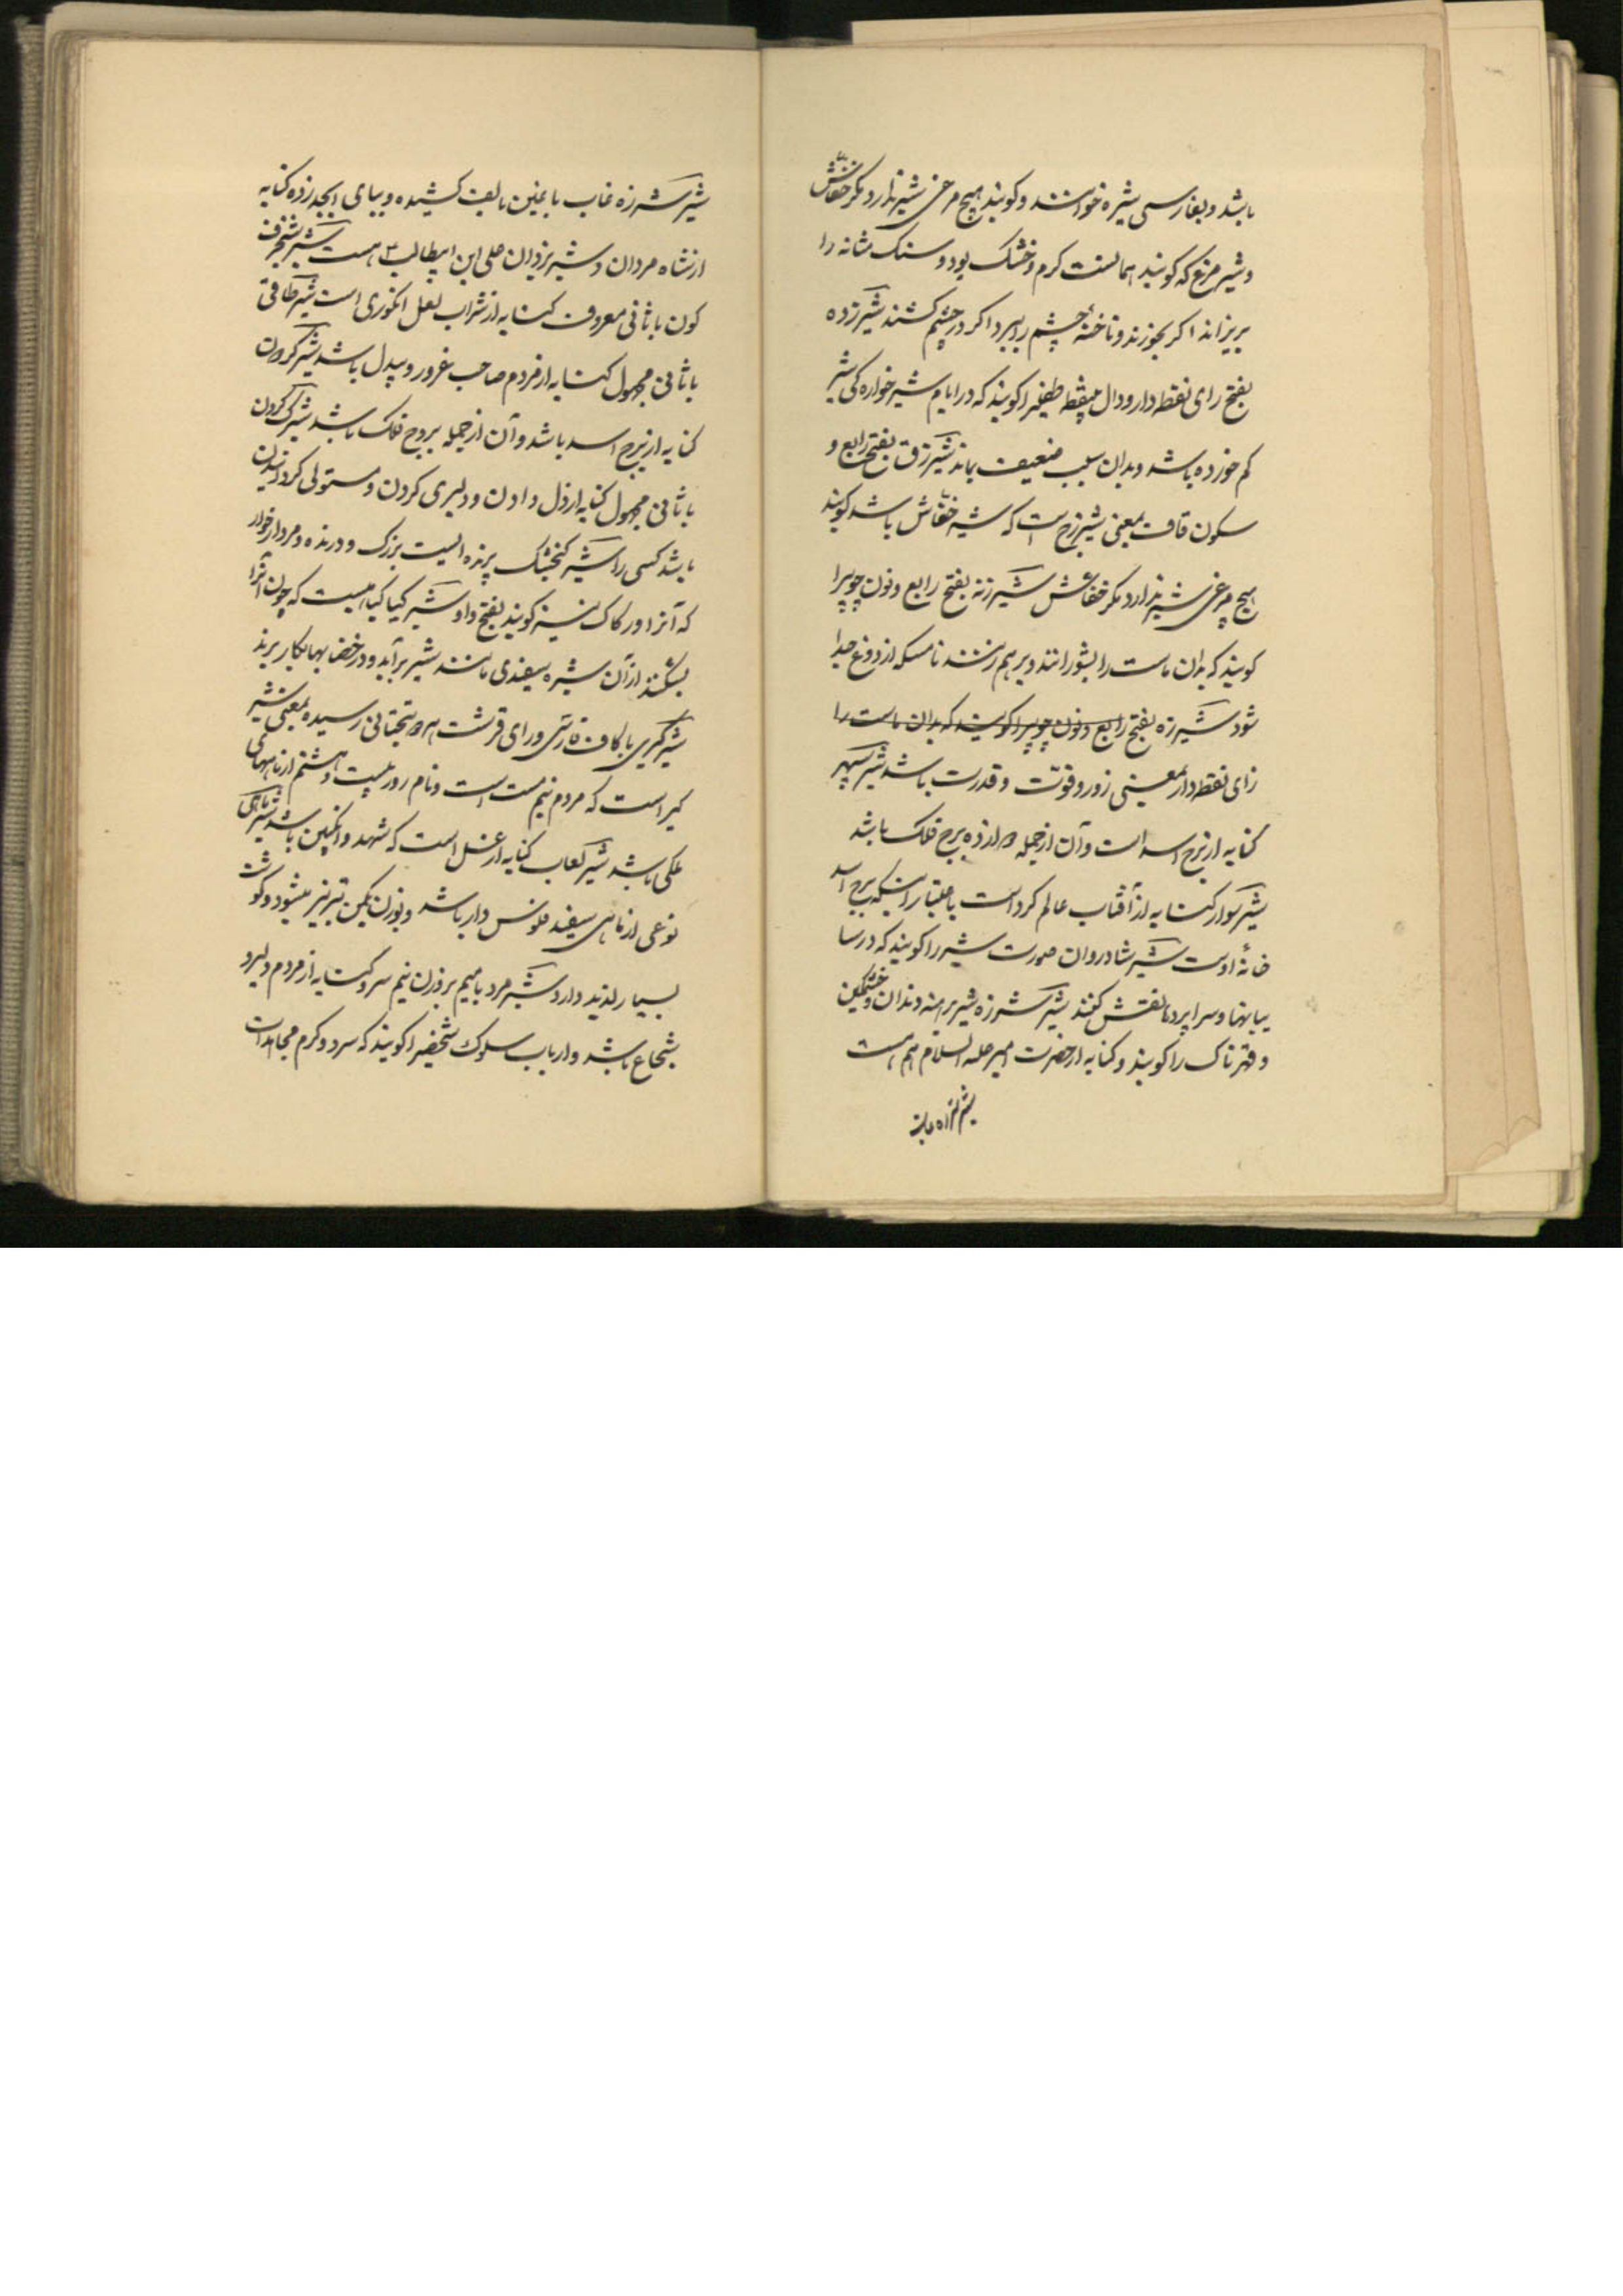 باشد و بفارسی شیره خوانند و کویند هیچ مرغی شیر ندارد مکر خفّاش
و شیر مرغ که کویند همانست کرم و خشک بود و سنک مثانه را
بریزاند اکر بخورند و ناخنهٔ چشم را ببرد اکر در چشم کشند شیرزده
بفتح رای نقطه‌دار و دال بینقطه طفلی را کویند که در ایام شیرخواره کی شیر
کم خورده باشد و بدان سبب ضعیف بماند شیرزق بفتح رابع و
سکون قاف بمعنی شیرزج است که شیر خفّاش باشد کویند
هیچ مرغی شیر ندارد مکر خفاش شیرزنه بفتح رابع و نون چوبیرا
کویند که بدان ماست را بشورانند و برهم زنند تا مسکه از دوغ جدا
شود شیرزه بفتح رابع و نون چوبیرا کویند که بدان ماست را
زای نقطه‌دار بمعنی زور و قوّت و قدرت باشد شیر سپهر
کنایه از برج اسد است و آن از جمله دوازده برج فلک باشد
شیر سوار کنایه از آفتاب عالم کرد است باعتبار اینکه برج اسد
خانهٔ اوست شیر شادروان صورت شیر را کویند که در سا
یبانها و سراپردها نقش کنند شیر شرزه شیر برهنه دندان و خشمکین
و قهرناک را کویند و کنایه از حضرت امیر علیه السلام هم هست
شیر شرزه غاب
شیر شرزه غاب با غین بالف کشیده و ببای ابجد زده کنایه
از شاه مردان و شیر یزدان علی ابن ابیطالب ۳ هست شیر شنجرف
کون با ثانی معروف کنایه از شراب لعل انکوری است شیر طاقی
با ثانی مجهول کنایه از مردم صاحب غرور و بیدل باشد شیر کردون
کنایه از برج اسد باشد و آن از جمله بروج فلک باشد شیرک کردن
با ثانی مجهول کنایه از دل دادن و دلیری کردن و مستولی کردانیدن
باشد کسی را شیر کنجشک پرنده ایست بزرک و درنده و مردار خوار
که آنرا ورکاک نیز کویند بفتح واو شیر کیا کیاهیست که چون آنرا
بشکنند از آن شیره سفیدی مانند شیر برآید و در خضابها بکار برند
شیر کیری با کاف فارسی و رای قرشت بر وزن تحتانی رسیده بمعنی شیر
کیر است که مردم نیم مست است و نام روز بیست و هشتم از ماههای
ملکی باشد شیر لعاب کنایه از عسل است که شهد و انکبین باشد شیر ماهی
نوعی از ماهی سفید فلوس دار باشد و بوزن یکمن تبریز میشود و کوشت
بسیار لذیذ دارد شیر مرد با میم بر وزن نیم سرد کنایه از مردم دلیر و
شجاع باشد و ارباب سلوک شخصی را کویند که سرد و کرم مجاهدات